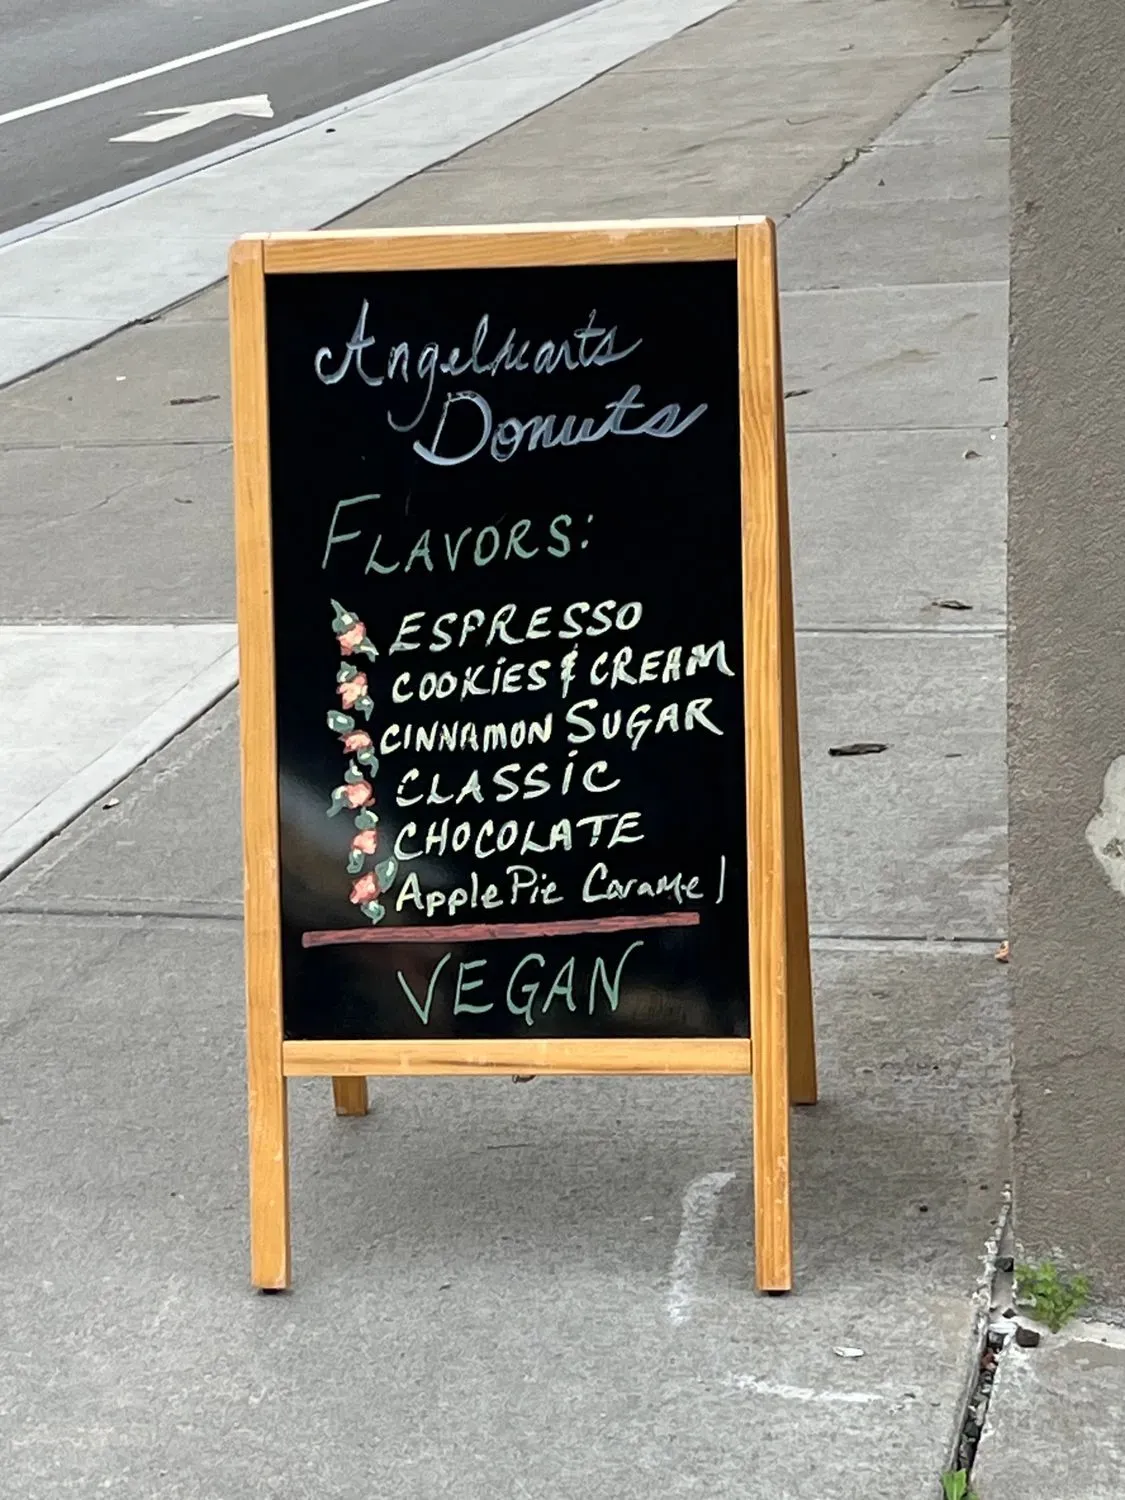 Angelhearts
Donuts
FLAVORS:
ESPRESSO
COOKIES & CREAM
CINNAMON SUGAR
CLASSIC
CHOCOLATE
Apple Pie Caramel
VEGAN